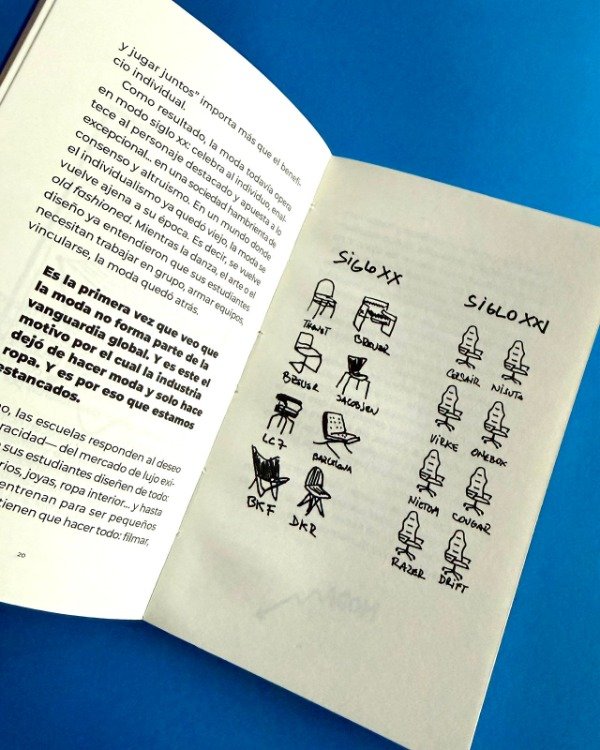 y jugar juntos” importa más que el benefi-
cio individual.
Como resultado, la moda todavía opera
en modo siglo xx: celebra al individuo, enal-
tece al personaje destacado y apuesta a lo
excepcional... en una sociedad hambrienta de
consenso y altruismo. En un mundo donde
el individualismo ya quedó viejo, la moda se
vuelve ajena a su época. Es decir, se vuelve
old fashioned. Mientras la danza, el arte o el
diseño ya entendieron que sus estudiantes
necesitan trabajar en grupo, armar equipos,
vincularse, la moda quedó atrás.
Es la primera vez que veo que
la moda no forma parte de la
vanguardia global. Y es este el
motivo por el cual la industria
dejó de hacer moda y solo hace
ropa. Y es por eso que estamos
estancados.
las escuelas responden al deseo
del mercado de lujo exi-
sus estudiantes diseñen de todo:
joyas, ropa interior... y hasta
entrenan para ser pequeños
tienen que hacer todo: filmar,
20
SIGLO XX
BREUER
JACOBSEN
LC7
BARCELONA
BKF
DKR
SIGLO XXI
CORSAIR
NISUTA
VIRKE
ONEBOX
COUGAR
RAZER
DRIFT